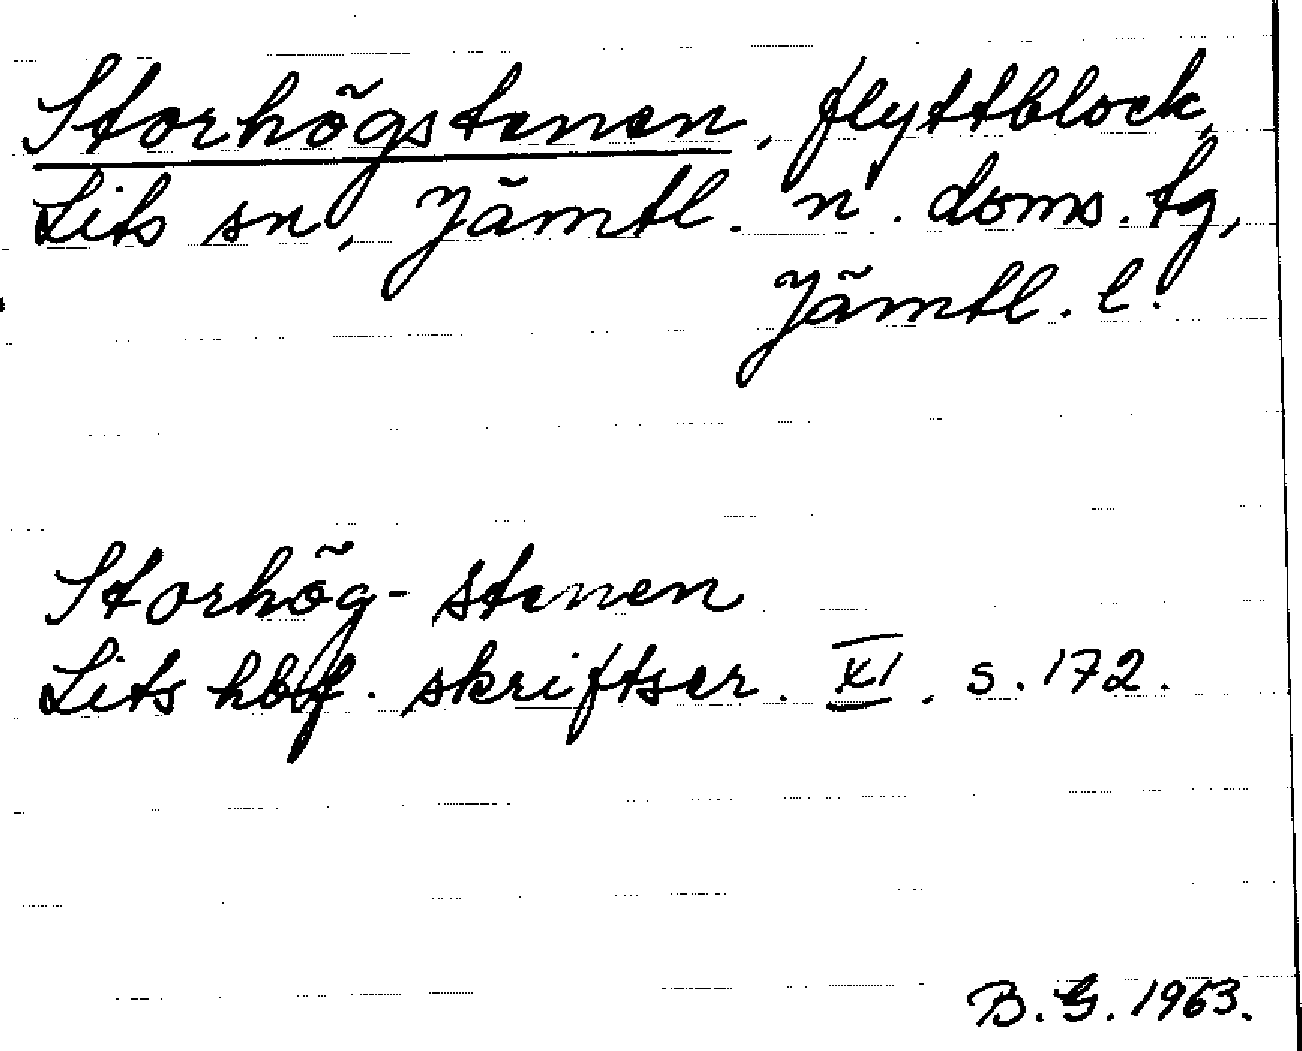 Storhögstenen, flyttblock,
Lits sn, Jämtl. n. doms. tg,
Jämtl. l.
Storhög-stenen
Lits hbf. skriftser. XI. s. 172.
B. G. 1963.